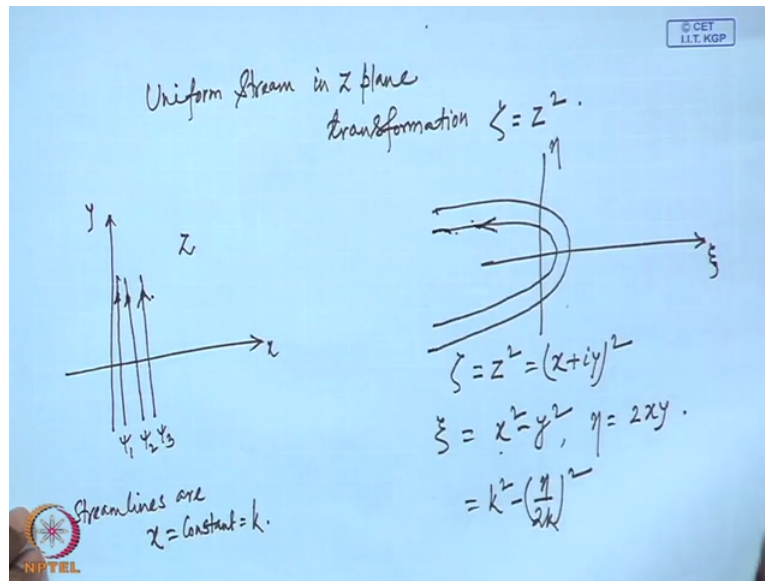 © CET
I.I.T. KGP
Uniform Stream in z plane
transformation ζ = z².
y
z
x
ψ₁ ψ₂ ψ₃
η
ξ
ζ = z² = (x+iy)²
ξ = x² - y², η = 2xy.
= k² - (η/2k)²
Streamlines are
x = Constant = k.
NPTEL